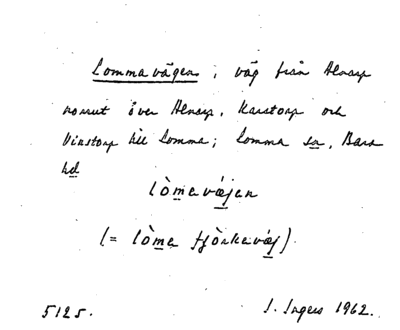 Lommavägen, väg från Alnarp
norrut över Alnarp, Karstorp och
Vinstorp till Lomma; Lomma sn, Bara
hd
lòmevæjen
(= lòme tjörkevæj).
5125. I. Ingers 1962.